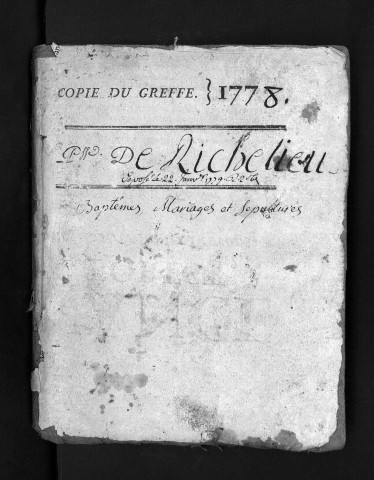 COPIE DU GREFFE. } 1778.
DE Richelieu
22. Janvr. 1779
Baptêmes Mariages et Sepultures